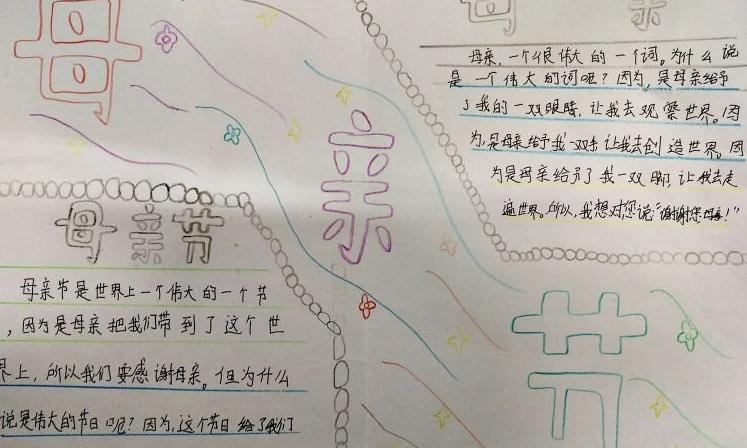 母
亲
节
母亲
母亲，一个很伟大的一个词。为什么说
是一个伟大的词呢？因为，是母亲给予
了我的一双眼睛，让我去观察世界。因
为，是母亲给予我一双手让我去创造世界。因
为是母亲给予了我一双脚让我去走
遍世界。所以，我想对您说“谢谢您母亲！”
母亲节
母亲节是世界上一个伟大的一个节
，因为是母亲把我们带到了这个世
界上，所以我们要感谢母亲。但为什么
说是伟大的节日呢？因为，这个节日给了我们